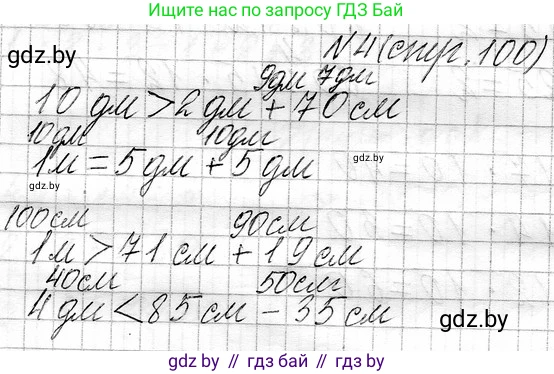 Ищите нас по запросу ГДЗ Бай
gdz.by
N4(стр. 100)
9дм 7дм
10 дм > 2 дм + 70 см
10дм 10дм
gdz.by
1м = 5 дм + 5 дм
gdz.by
100см 90см
1м > 71 см + 19 см
40см 50см
4 дм < 85 см - 35 см
gdz.by
gdz.by // гдз бай // gdz.by